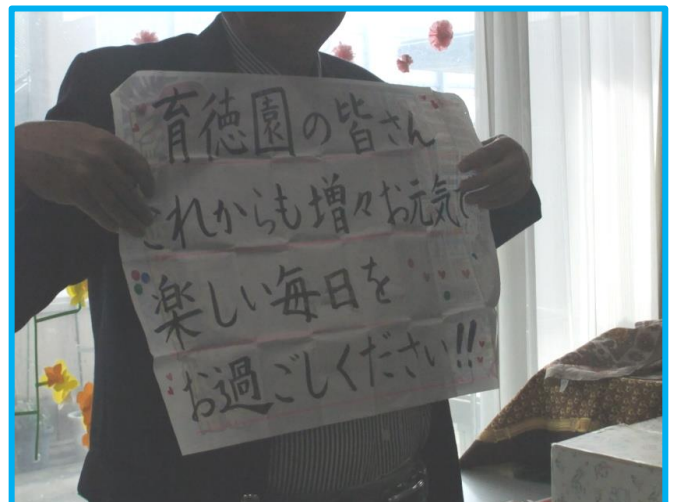 育徳園の皆さん
これからも増々お元気で
楽しい毎日を
お過ごしください!!